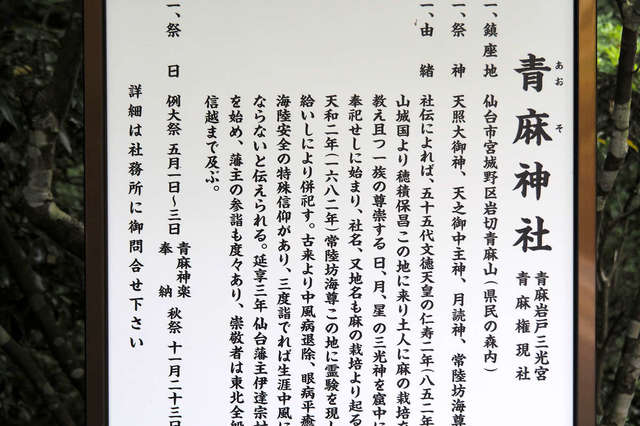 青麻神社
あお そ
青麻岩戸三光宮
青麻権現社
一、鎮座地 仙台市宮城野区岩切青麻山(県民の森内)
一、祭神 天照大御神、天之御中主神、月読神、常陸坊海尊
一、由緒 社伝によれば、五十五代文徳天皇の仁寿二年(八五二年
山城国より穂積保昌この地に来り土人に麻の栽培を
教え且つ一族の尊崇する日、月、星の三光神を窟中に
奉祀せしに始まり、社名、又地名も麻の栽培より起る
天和二年(一六八二年)常陸坊海尊この地に霊験を現し
給いしにより併祀す。古来より中風病退除、眼病平癒
海陸安全の特殊信仰があり、三度詣でれば生涯中風に
ならないと伝えられる。延享三年仙台藩主伊達宗村
を始め、藩主の参詣も度々あり、崇敬者は東北全般
信越まで及ぶ。
一、祭日 例大祭 五月一日〜三日 青麻神楽奉納 秋祭 十一月二十三日
詳細は社務所に御問合せ下さい